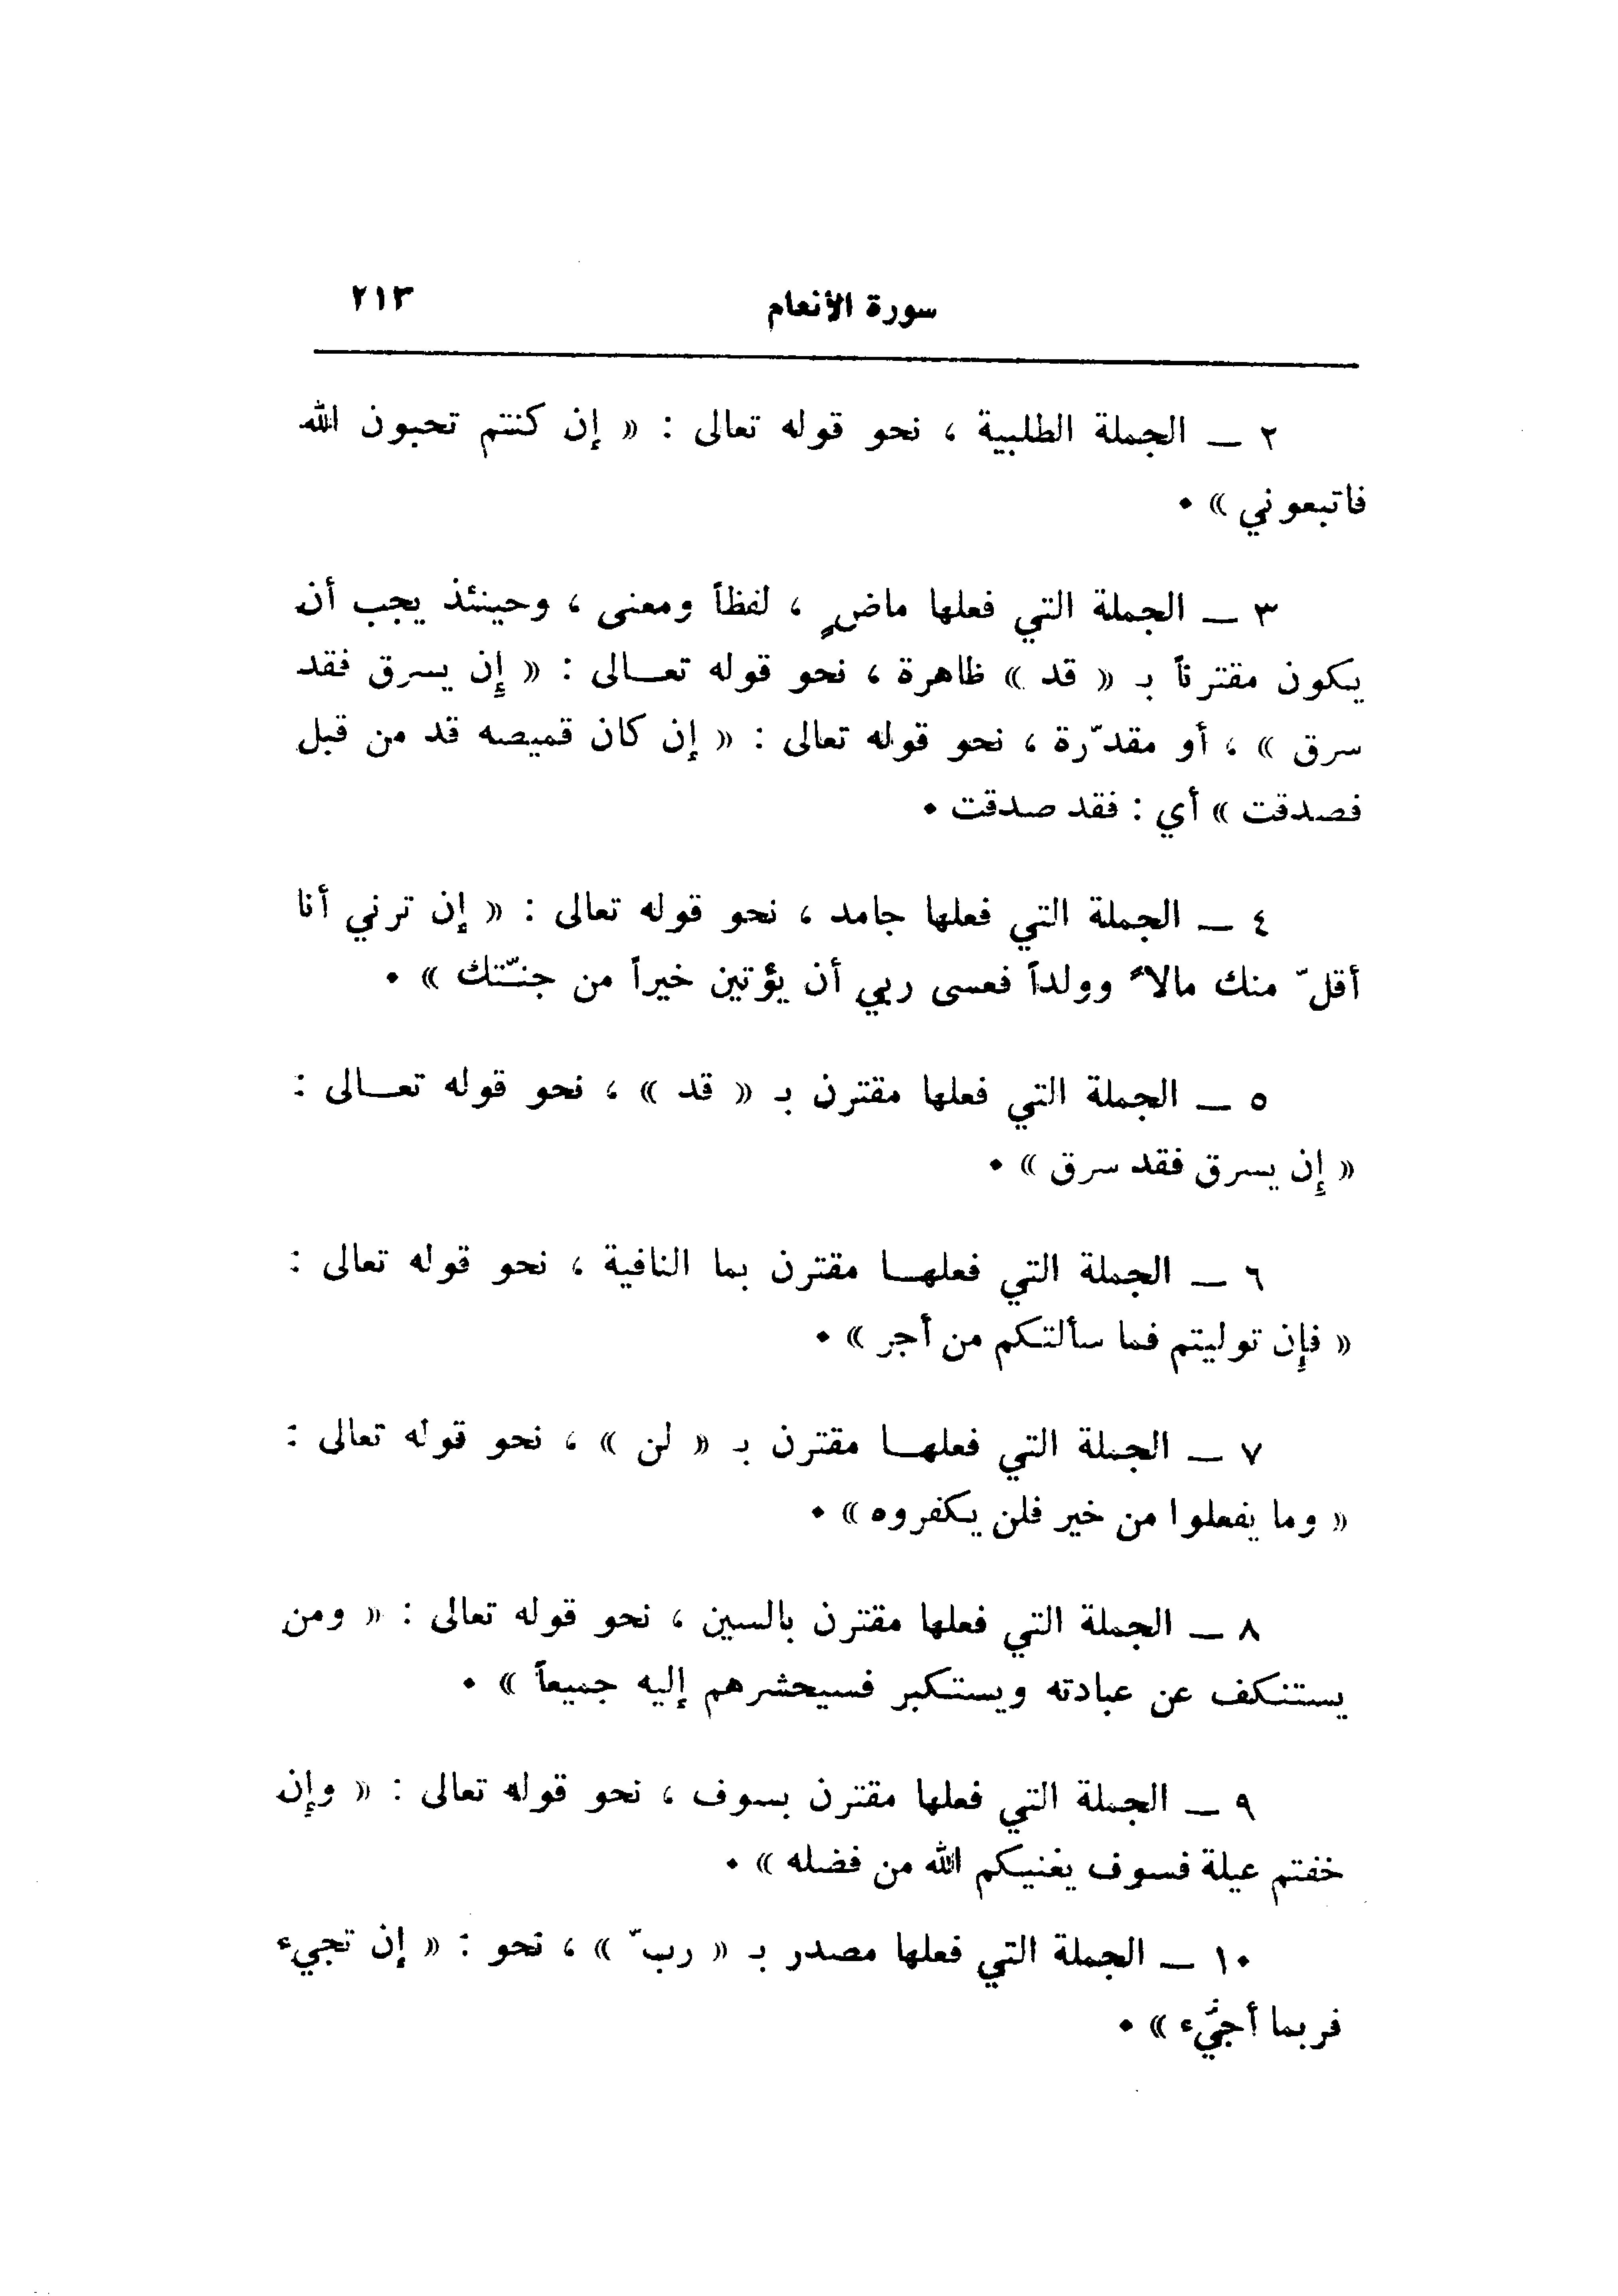 سورة الأنعام ٢١٣
٢ ــ الجملة الطلبية ، نحو قوله تعالى : « إن كنتم تحبون الله
فاتبعوني » ٠
٣ ــ الجملة التي فعلها ماضٍ ، لفظاً ومعنى ، وحينئذ يجب أن
يكون مقترناً بـ « قد » ظاهرة ، نحو قوله تعـــالى : « إن يسرق فقد
سرق » ، أو مقدّرة ، نحو قوله تعالى : « إن كان قميصه قد من قبل
فصدقت » أي : فقد صدقت ٠
٤ ــ الجملة التي فعلها جامد ، نحو قوله تعالى : « إن ترني أنا
أقلّ منك مالاً وولداً فعسى ربي أن يؤتين خيراً من جنّتك » ٠
٥ ــ الجملة التي فعلها مقترن بـ « قد » ، نحو قوله تعـــالى :
« إن يسرق فقد سرق » ٠
٦ ــ الجملة التي فعلهـــا مقترن بما النافية ، نحو قوله تعالى :
« فإن توليتم فما سألتكم من أجر » ٠
٧ ــ الجملة التي فعلهـــا مقترن بـ « لن » ، نحو قوله تعالى :
« وما يفعلوا من خير فلن يكفروه » ٠
٨ ــ الجملة التي فعلها مقترن بالسين ، نحو قوله تعالى : « ومن
يستنكف عن عبادته ويستكبر فسيحشرهم إليه جميعاً » ٠
٩ ــ الجملة التي فعلها مقترن بسوف ، نحو قوله تعالى : « وإن
خفتم عيلة فسوف يغنيكم الله من فضله » ٠
١٠ ــ الجملة التي فعلها مصدر بـ « ربّ » ، نحو : « إن تجيء
فربما أجيء » ٠